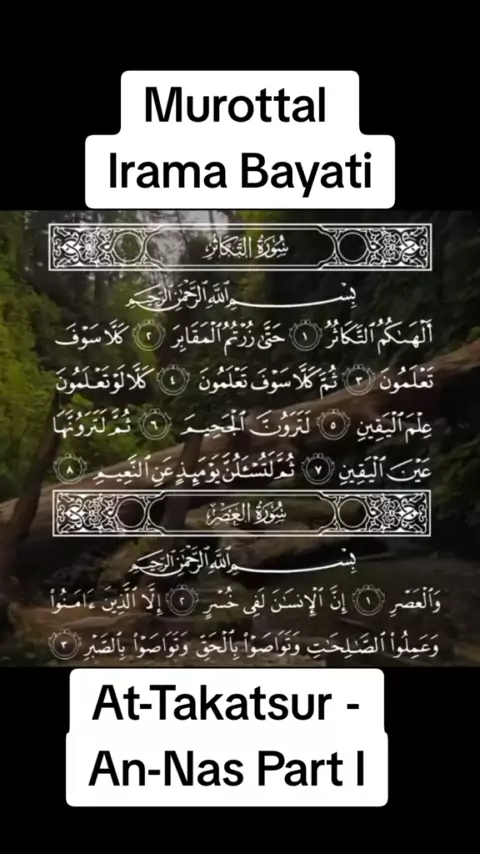 Murottal
Irama Bayati
سُورَةُ التَّكَاثُرِ
بِسْمِ اللَّهِ الرَّحْمَٰنِ الرَّحِيمِ
أَلْهَىٰكُمُ ٱلتَّكَاثُرُ ١ حَتَّىٰ زُرْتُمُ ٱلْمَقَابِرَ ٢ كَلَّا سَوْفَ
تَعْلَمُونَ ٣ ثُمَّ كَلَّا سَوْفَ تَعْلَمُونَ ٤ كَلَّا لَوْ تَعْلَمُونَ
عِلْمَ ٱلْيَقِينِ ٥ لَتَرَوُنَّ ٱلْجَحِيمَ ٦ ثُمَّ لَتَرَوُنَّهَا
عَيْنَ ٱلْيَقِينِ ٧ ثُمَّ لَتُسْـَٔلُنَّ يَوْمَئِذٍ عَنِ ٱلنَّعِيمِ ٨
سُورَةُ العَصْرِ
بِسْمِ اللَّهِ الرَّحْمَٰنِ الرَّحِيمِ
وَٱلْعَصْرِ ١ إِنَّ ٱلْإِنسَٰنَ لَفِى خُسْرٍ ٢ إِلَّا ٱلَّذِينَ ءَامَنُوا۟
وَعَمِلُوا۟ ٱلصَّٰلِحَٰتِ وَتَوَاصَوْا۟ بِٱلْحَقِّ وَتَوَاصَوْا۟ بِٱلصَّبْرِ ٣
At-Takatsur -
An-Nas Part I